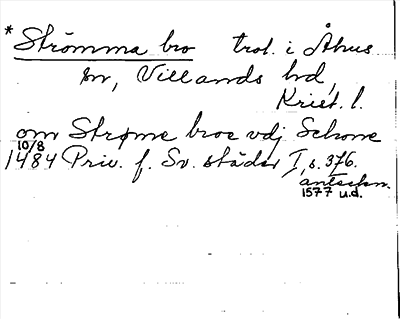 * Strömma bro trol. i Åhus
sn, Villands hd,
Krist. l.
om Strøme broe vdj Schone
10/8
1484 Priv. f. Sv. städer I, s. 376.
anteckn.
1577 u.d.